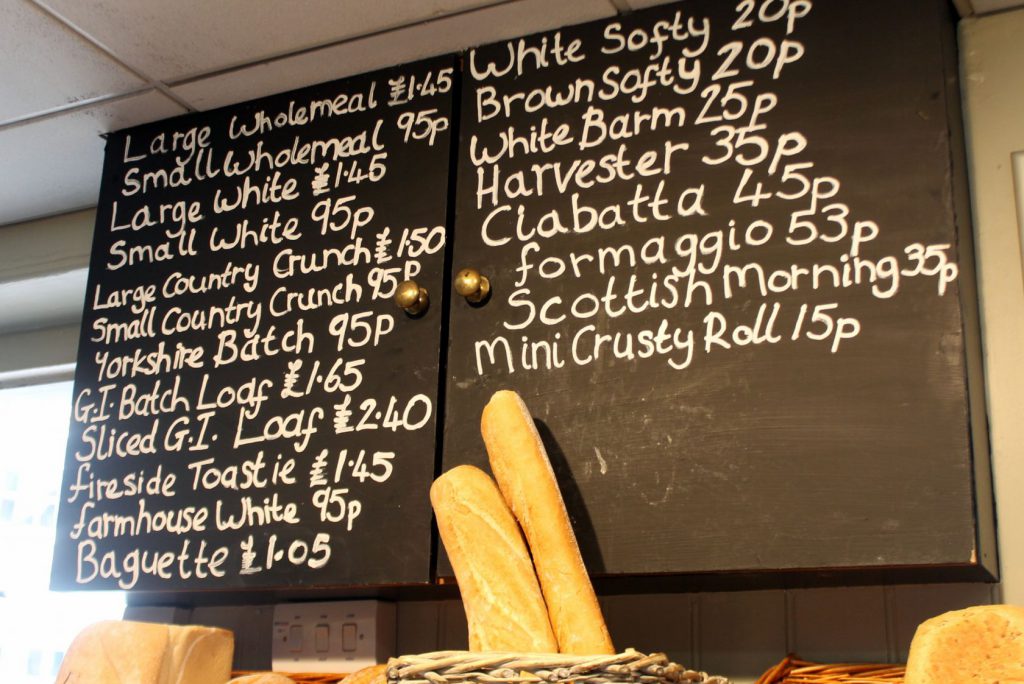 Large Wholemeal £1.45
Small Wholemeal 95p
Large White £1.45
Small White 95p
Large Country Crunch £1.50
Small Country Crunch 95p
Yorkshire Batch 95p
G.I. Batch Loaf £1.65
Sliced G.I. Loaf £2.40
fireside Toastie £1.45
farmhouse White 95p
Baguette £1.05
White Softy 20p
Brown Softy 20p
White Barm 25p
Harvester 35p
Ciabatta 45p
formaggio 53p
Scottish Morning 35p
Mini Crusty Roll 15p